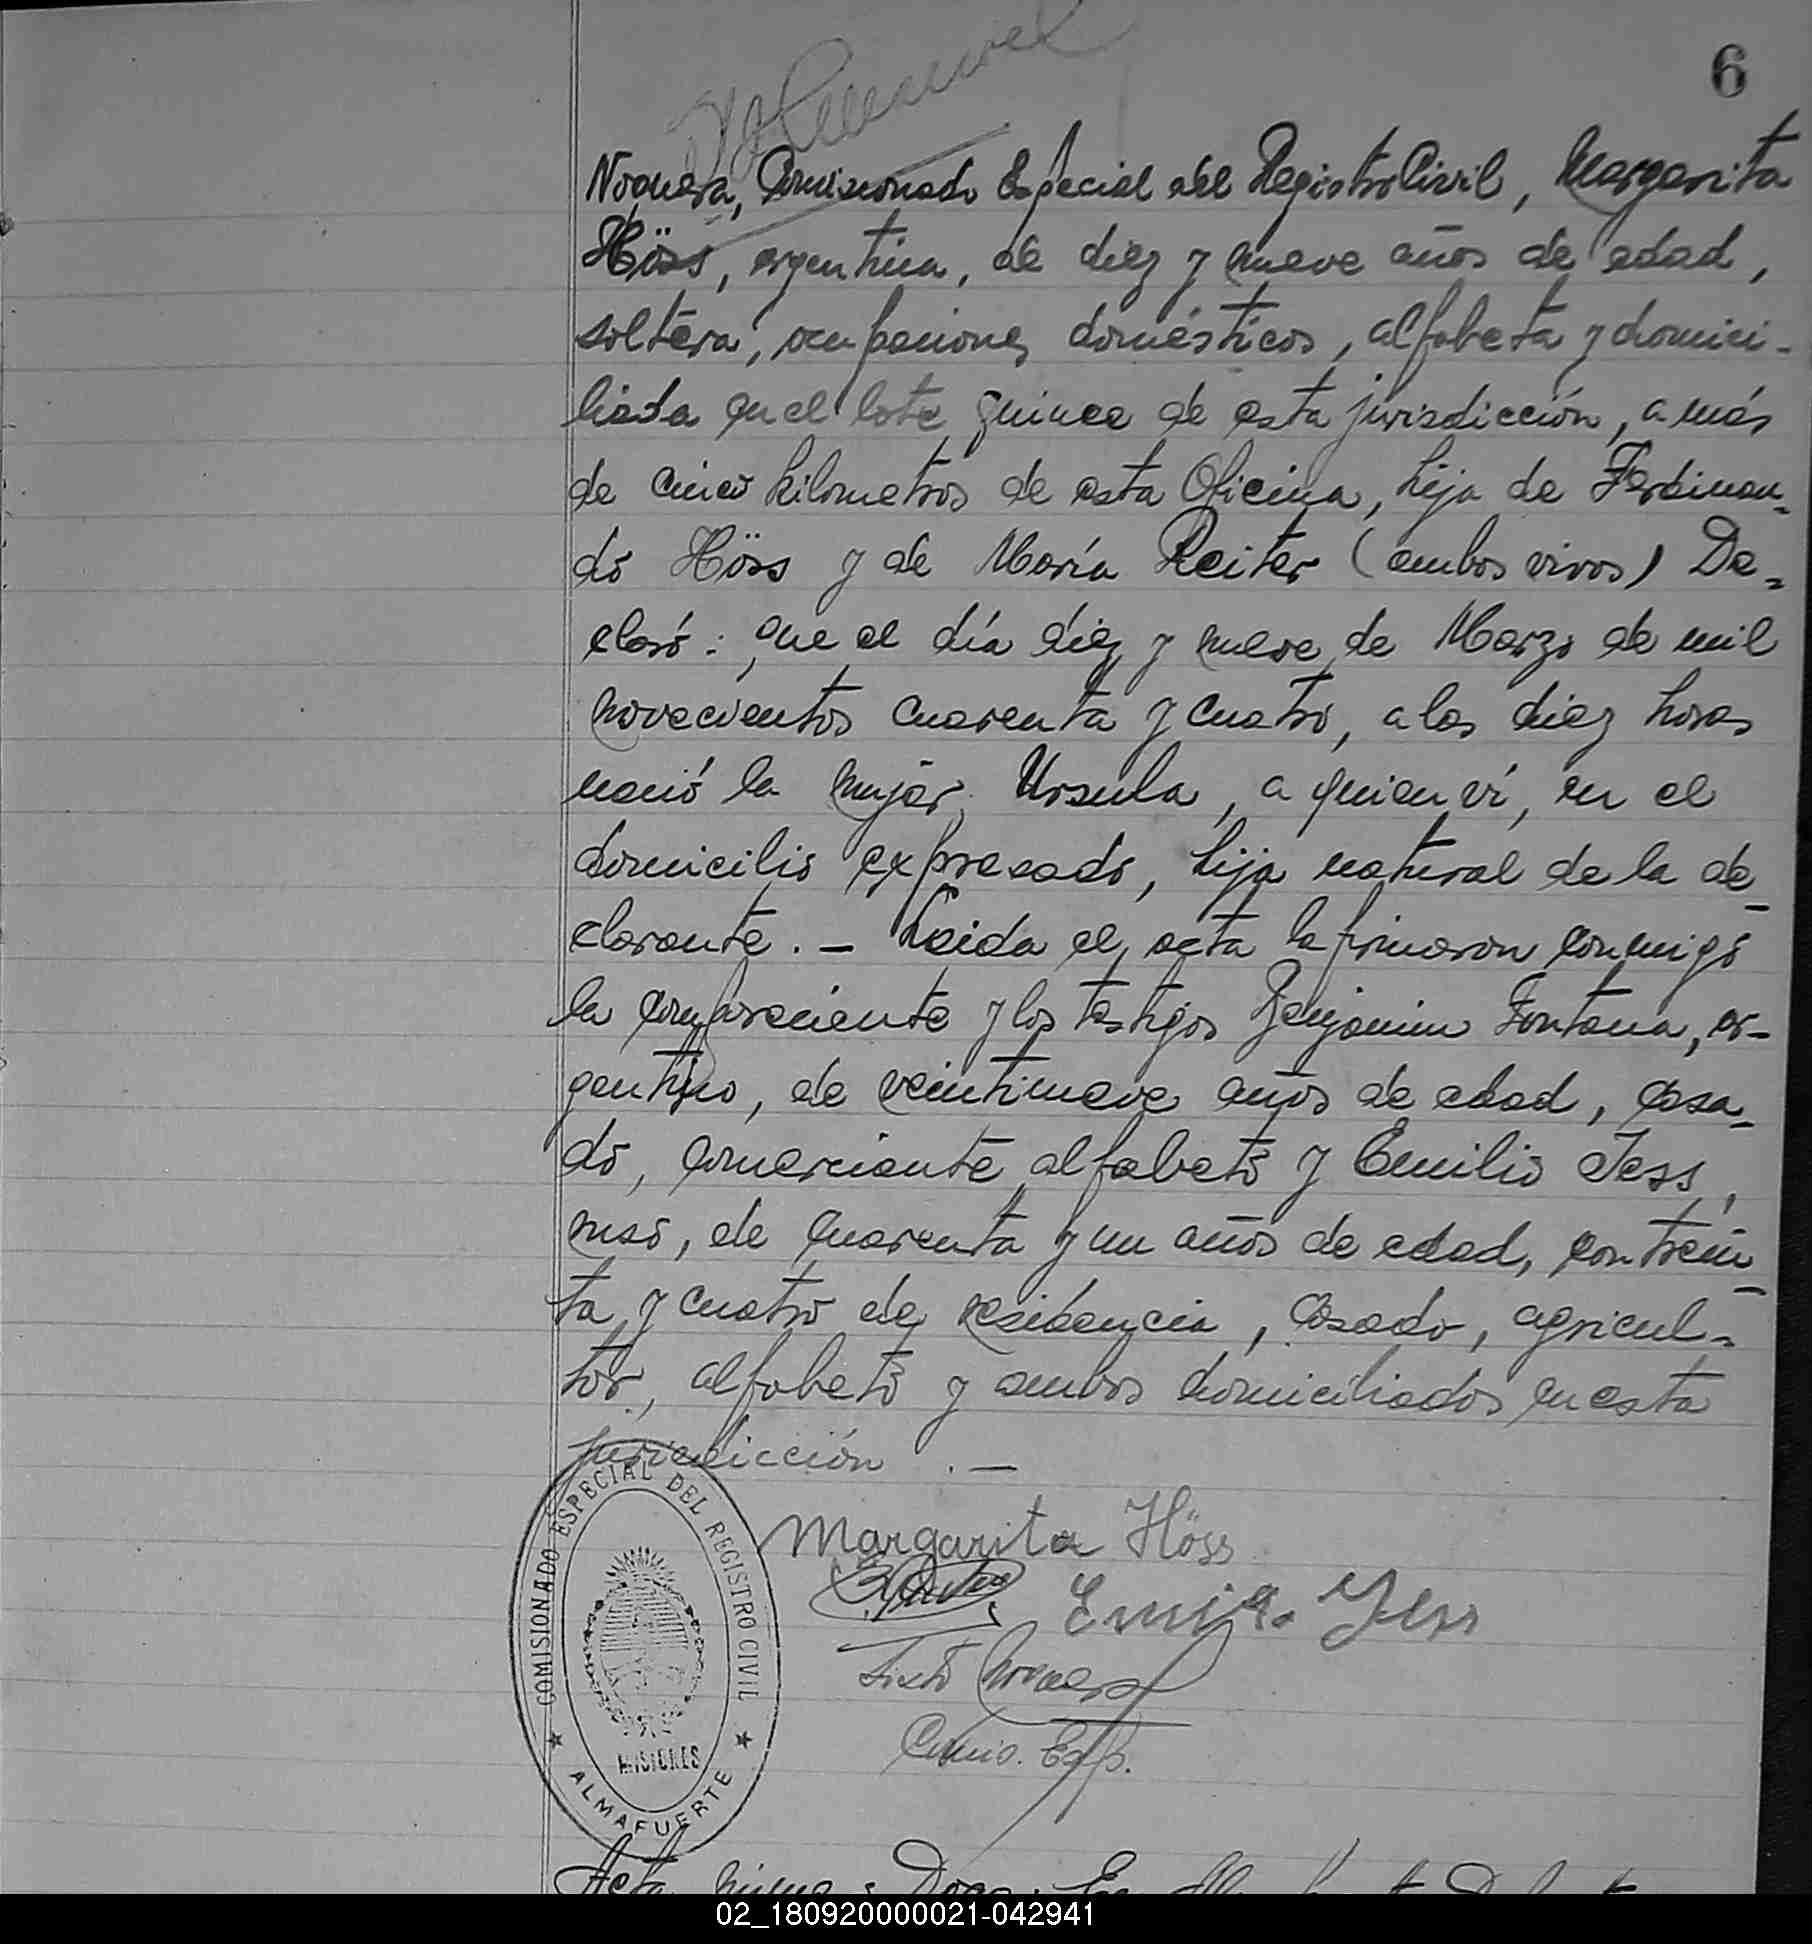 6
Noguera, Comisionado Especial del Registro Civil, Margarita
Höss, argentina, de diez y nueve años de edad,
soltera, ocupaciones domésticas, alfabeta y domici-
liada en el lote quince de esta jurisdicción, a más
de cinco kilometros de esta Oficina, hija de Ferdinan-
do Höss y de María Reiter (ambos vivos) De-
claró: que el día diez y nueve de Marzo de mil
novecientos cuarenta y cuatro, a las diez horas
nació la mujer Ursula, a quien ví, en el
domicilio expresado, hija natural de la de-
clarante. — Leida el acta la firmaron conmigo
la compareciente y los testigos Benjamin Fontana, ar-
gentino, de veintinueve años de edad, casa-
do, comerciante, alfabeto y Emilio Jess,
ruso, de cuarenta y un años de edad, con trein-
ta y cuatro de residencia, casado, agricul-
tor, alfabeto y ambos domiciliados en esta
jurisdicción. —
Margarita Höss
Emilio Jess
Sixto Noguera
Comis. Esp.
COMISIONADO ESPECIAL DEL REGISTRO CIVIL
MISIONES
★ ALMAFUERTE ★
Acta número Doce: En
02_180920000021-042941